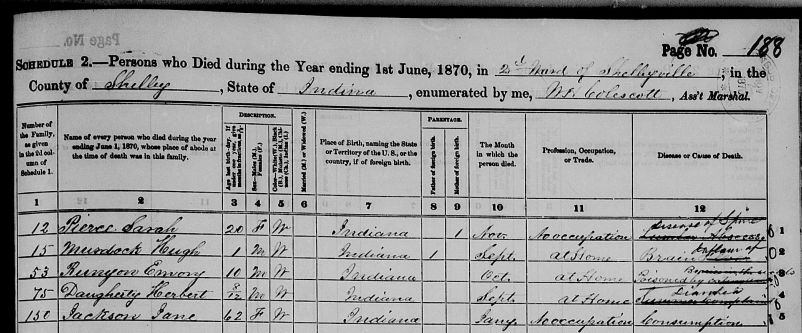 Page No. 188
SCHEDULE 2.—Persons who Died during the Year ending 1st June, 1870, in 2d Ward of Shelbyville, in the
County of Shelby, State of Indiana, enumerated by me, Wm Colescott, Ass't Marshal.
Number of the Family, as given in the 2d column of Schedule 1.
Name of every person who died during the year ending June 1, 1870, whose place of abode at the time of death was in this family.
DESCRIPTION.
Age last birth-day. If under one year, give months in fractions, as
Sex—Males (M.), Females (F.)
Color—White (W.), Black (B.), Mulatto (M.), Chinese (C.), Indian (I.)
Married (M.) or Widowed (W.)
Place of Birth, naming the State or Territory of the U. S., or the country, if of foreign birth.
PARENTAGE.
Father of foreign birth.
Mother of foreign birth.
The Month in which the person died.
Profession, Occupation, or Trade.
Disease or Cause of Death.
1 2 3 4 5 6 7 8 9 10 11 12
12 Pierce Sarah 20 F W Indiana 1 Nov. No occupation disease of Spine 1
15 Murdock Hugh 1 M W Indiana 1 Sept. at Home Brain 2
53 Runyon Emory 10 M W Indiana Oct. at Home Poisoned by 3
75 Daugherty Herbert M W Indiana Sept. at Home Summer Complaint 4
150 Jackson Jane 62 F W Indiana Jany. No occupation Consumption 5